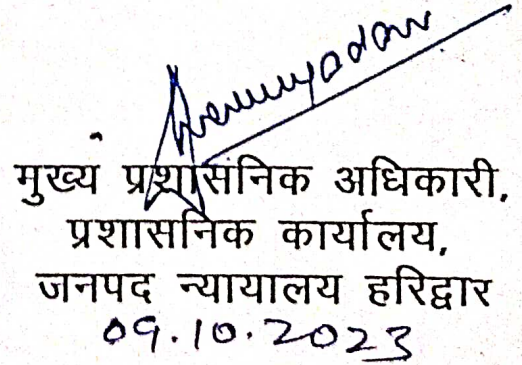 मुख्य प्रशासनिक अधिकारी,
प्रशासनिक कार्यालय,
जनपद न्यायालय हरिद्वार
09.10.2023